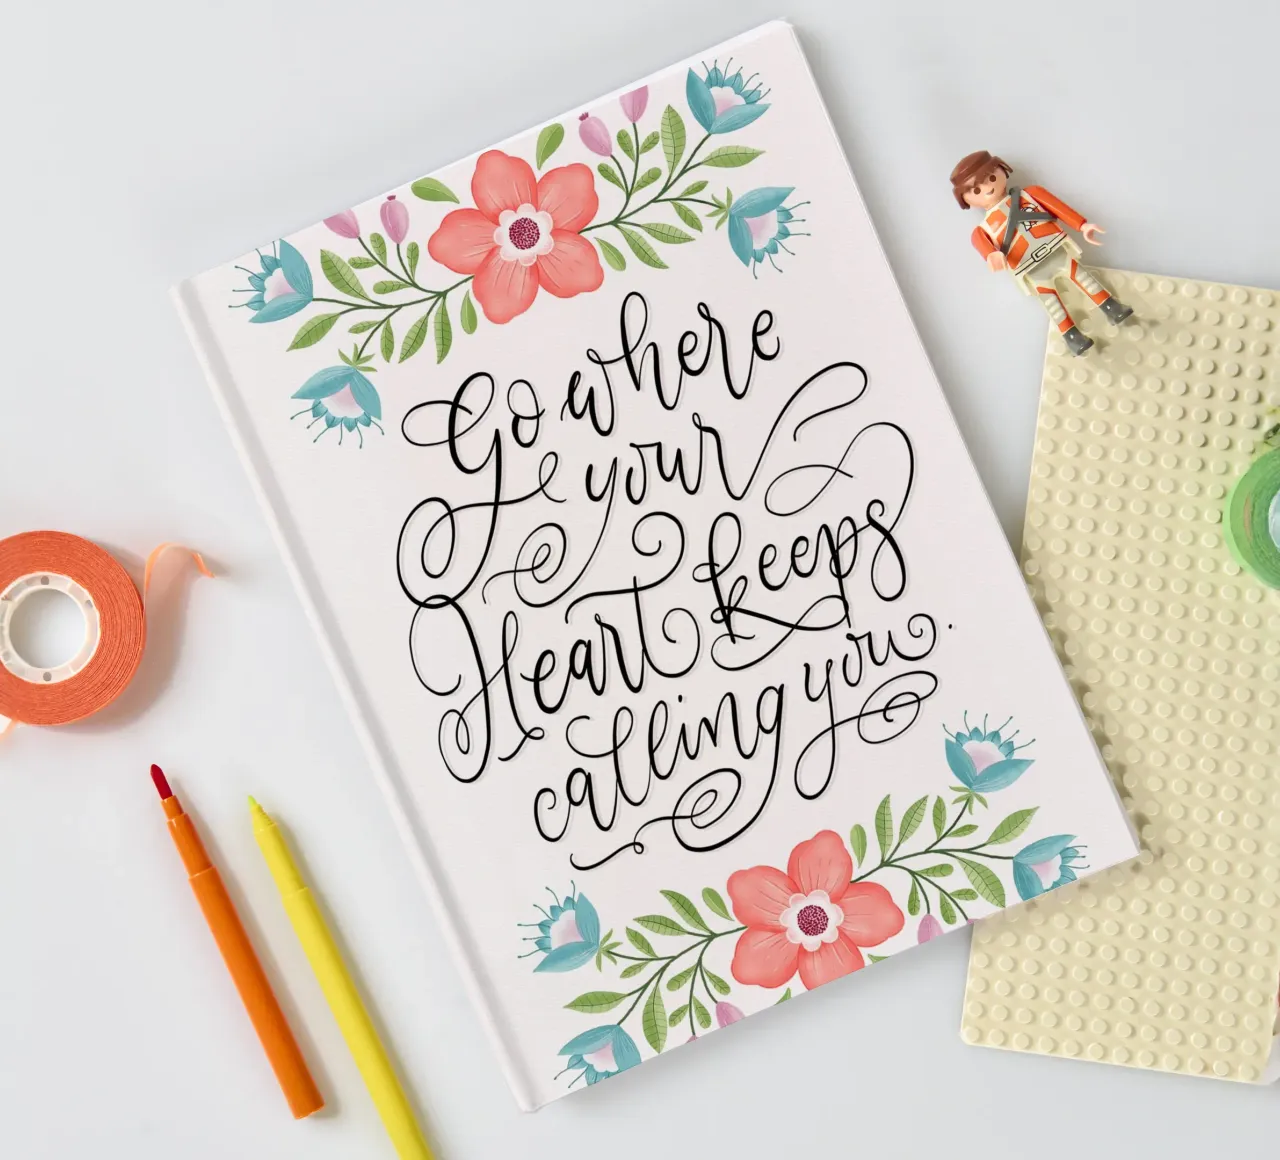 Go where
your
Heart keeps
calling you.